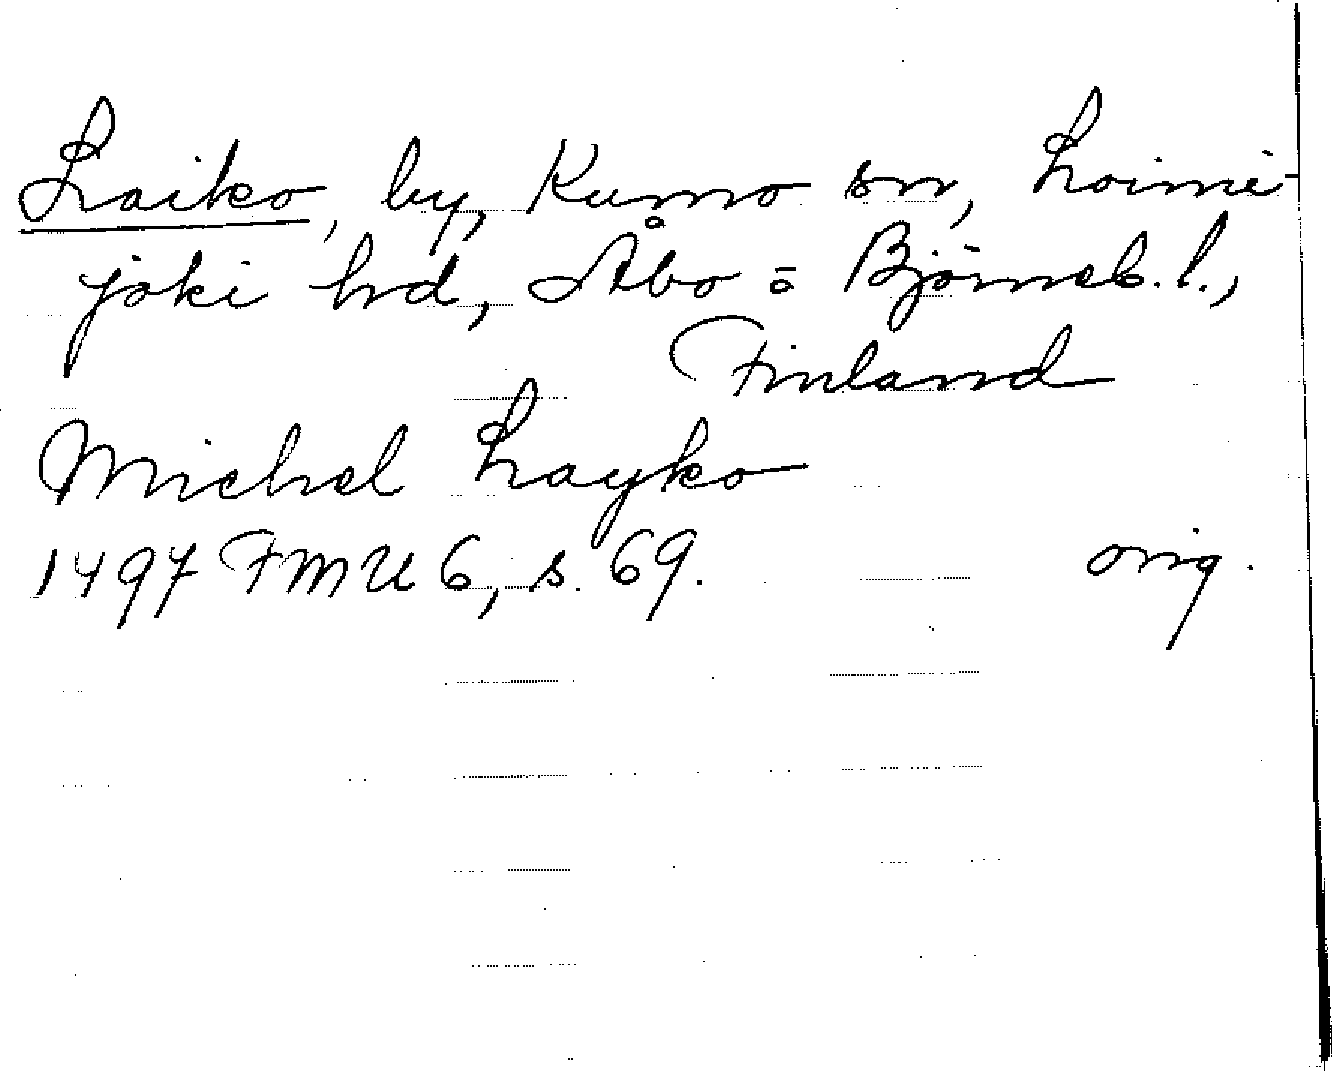 Laiko, by, Kumo sn, Loimi-
joki hrd, Åbo = Björneb. l.,
Finland
Michel Layko
1497 FMU 6, s. 69. orig.